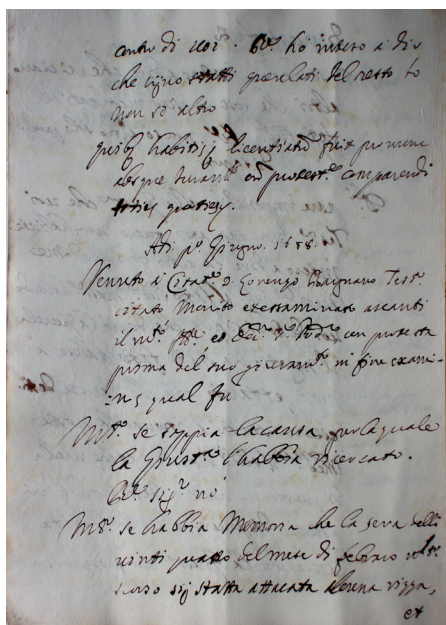 contro di voi. R. ho inteso a dir
che siino statti querelati del resto Io
non so altro
quibus habitis licentiatus fuit pro nunc
absque iuram.to cum protest.e comparendi
toties quoties.
Adi p.o Giugno. 1688.
Venuto a Citat.e D. Lorenzo Test.o
citato Monito et essaminato avanti
il m.to et con protesta
prima del suo giuram.to in fine exami-
-nis qual fu
Int.o se sappia la causa per la quale
la Giust.a l'habbia ricercato.
R. Sig.r no
Int.o se habbia Memoria che la sera delli
vinti quatro del mese di febraro
scorso sij statta attacata alcuna rizza,
et